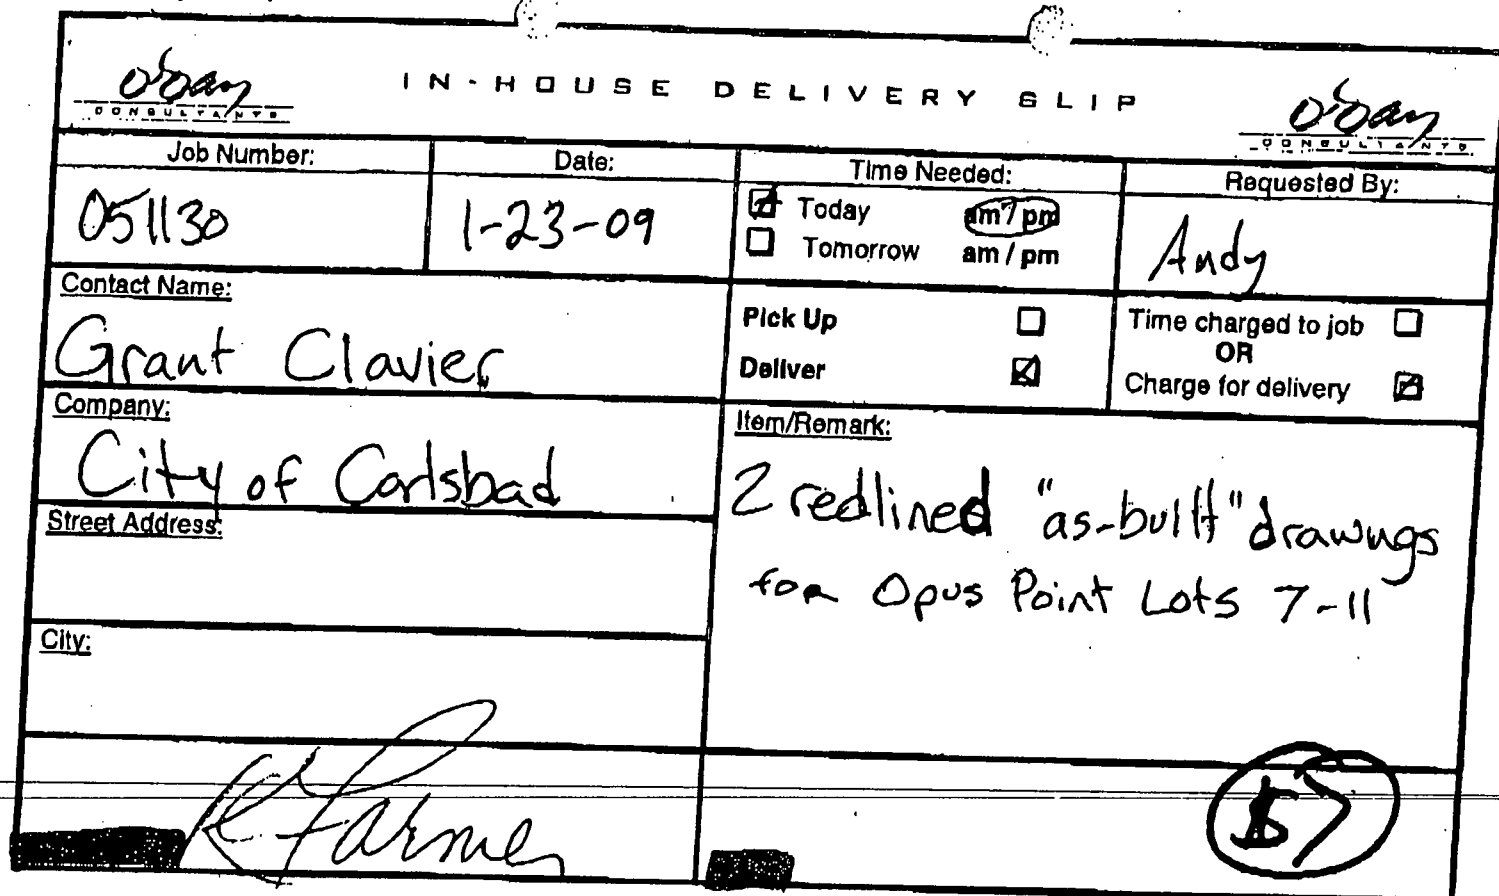 o'day
CONSULTANTS
IN-HOUSE DELIVERY SLIP
o'day
CONSULTANTS
Job Number:
051130
Date:
1-23-09
Time Needed:
Today am / pm
Tomorrow am / pm
Requested By:
Andy
Contact Name:
Grant Clavier
Pick Up
Deliver
Time charged to job
OR
Charge for delivery
Company:
City of Carlsbad
Item/Remark:
2 redlined "as-built" drawings
for Opus Point Lots 7-11
Street Address:
City:
K Farmer
$7